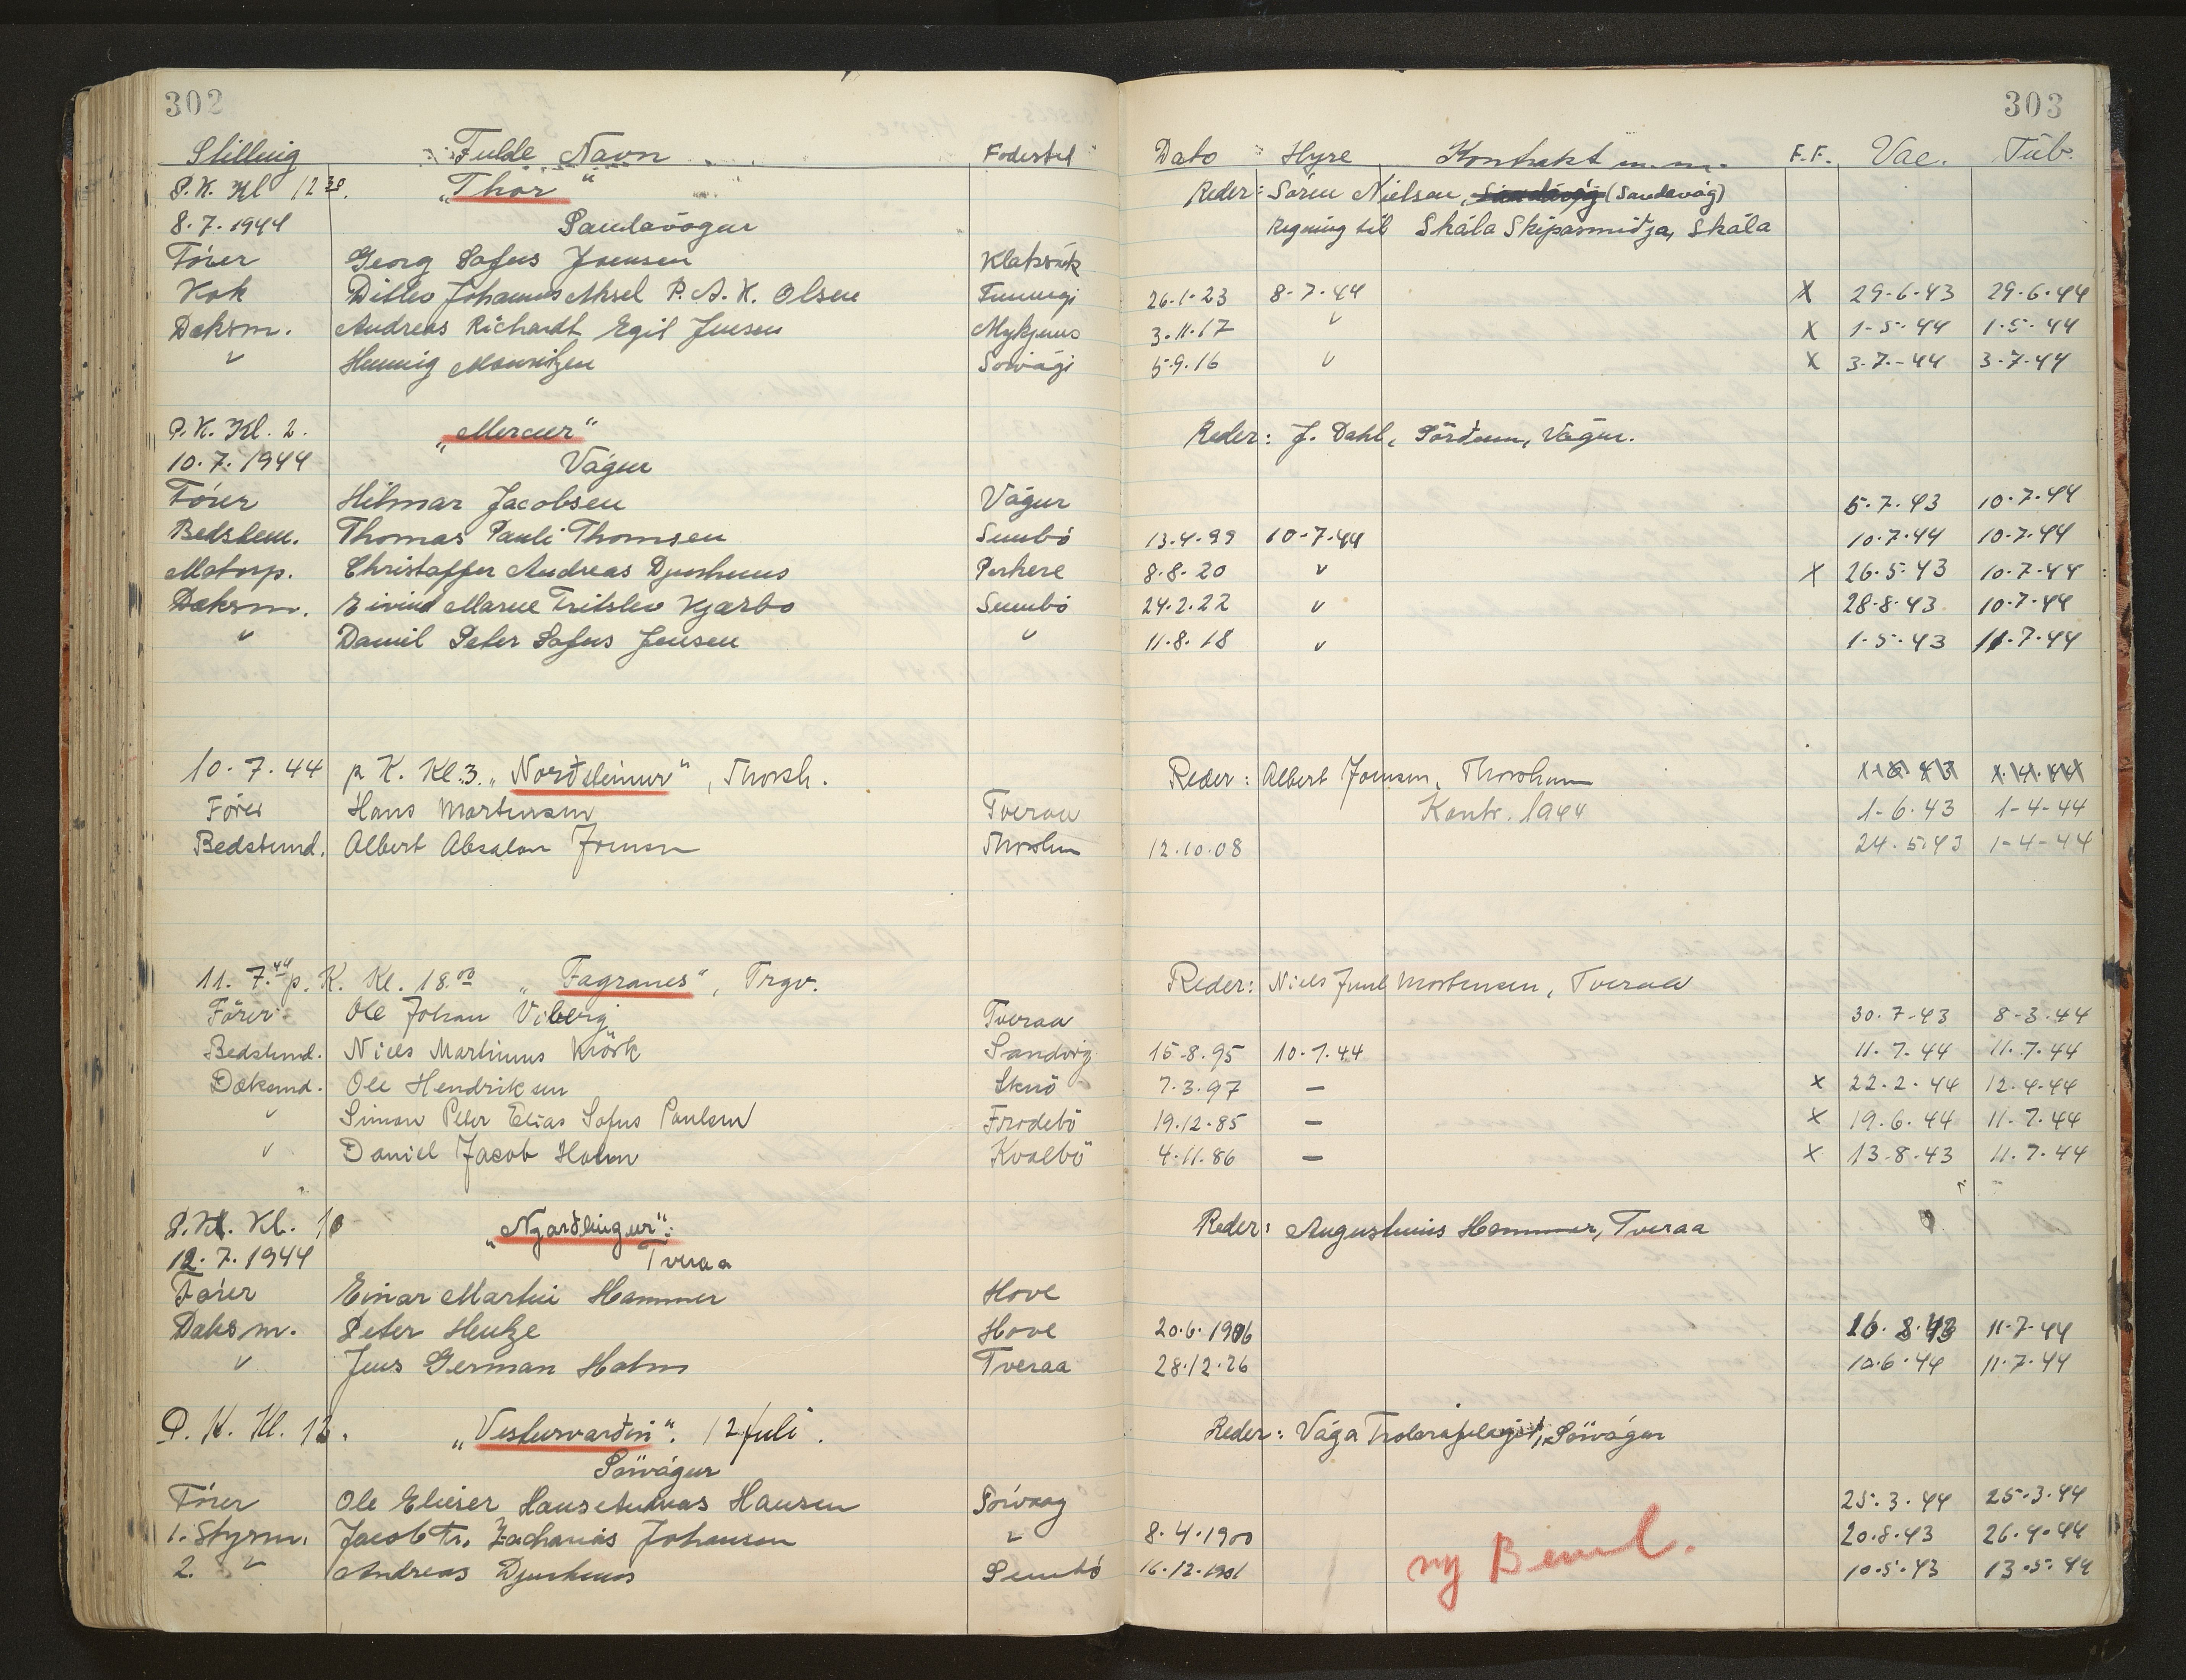 302
303
Stilling Fulde Navn Fodested Dato Hyre Kontrakt m.m. F.F. Vac. Tub.
P.K. Kl 12 30. "Thor" Reder: Sören Nielsen, (Sandavág)
8.7.1944 Sandavágur Regning til Skála Skipasmiðja, Skála
Förer Georg Sofus Joensen Klaksvik
Kok Ditlev Johannes Aksel P.A.K. Olsen 26.1.23 8-7-44 X 29-6-43 29-6-44
Dæksm. Andreas Richardt Egil Jensen Mykjunes 3.11.17 " X 1-5-44 1-5-44
" Henning Mouritzen Sörvági 5.9.16 " X 3-7-44 3-7-44
P.K. Kl. 2. "Mercur" Reder: J. Dahl, Vágur.
10.7.1944 Vágur
Förer Hilmar Jacobsen Vágur 5-7-43 10-7-44
Bedstem. Thomas Pauli Thomsen Sumbö 13.4.99 10-7-44 10-7-44 10-7-44
Motorp. Christoffer Andreas Djurhuus Porkere 8.8.20 " X 26-5-43 10-7-44
Dæksm. Eivind Marne Fritslev Kjærbo Sumbö 24.2.22 " 28-8-43 10-7-44
" Daniel Peter Sofus Jensen " 11.8.18 " 1-5-43 11-7-44
10.7.44 p K. Kl.3. "Norðsteinur", Thorsh. Reder: Albert Joensen, Thorshavn
Förer Hans Mortensen Tveraa Kontr. 1944 1-6-43 1-4-44
Bedstemd. Albert Absalon Joensen Thorshvn 12.10.08 24.5.43 1-4-44
11.7.44 p. K. Kl. 18.00 "Fagranes", Trgv. Reder: Niels Juul Mortensen, Tveraa
Förer Ole Johan Viberg Tveraa 30.7-43 8-3-44
Bedstmd. Niels Martinus Krörk Sandvig 15-8.95 10.7.44 11.7.44 11.7.44
Dæksmd. Ole Hendriksen Skuö 7.3.97 — X 22-2-44 12.4.44
" Simon Peter Elias Sofus Poulsen Frodebö 19.12.85 — X 19.6.44 11.7.44
" Daniel Jacob Holm Kvalbö 4.11.86 — X 13-8-43 11.7.44
P.K. Kl. 10 "Nyarðlingur". Reder: Augustinus Hammer, Tveraa
12.7.1944 Tveraa
Förer Einar Martin Hammer Hove
Dæksm. Peter Hentze Hove 20.6.1906 16.8.43 11-7-44
" Jens German Holm Tveraa 28.12.26 10.6.44 11-7-44
P.K. Kl. 13. "Vesturvarðin". 12 juli. Reder: Vága Trolarafelagið, Sörvágur
Sörvágur
Förer Ole Elieser Hans Thomas Hansen Sörvaag 25.3.44 25.3.44
1. Styrm. Jacob Fr. Zacharias Johansen " 8.4.1900 20.8.43 26.4.44
2. " Andreas Djurhuus Sumbö 16.12.1901 ny Beml. 10.5.43 13.5.44